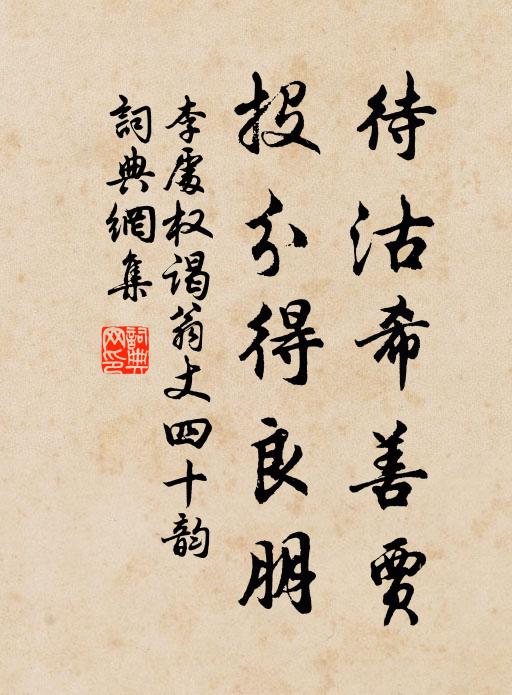 待沽希善賈
投分得良朋
李處权謁翁丈四十韵
詞典網集
詞典网印